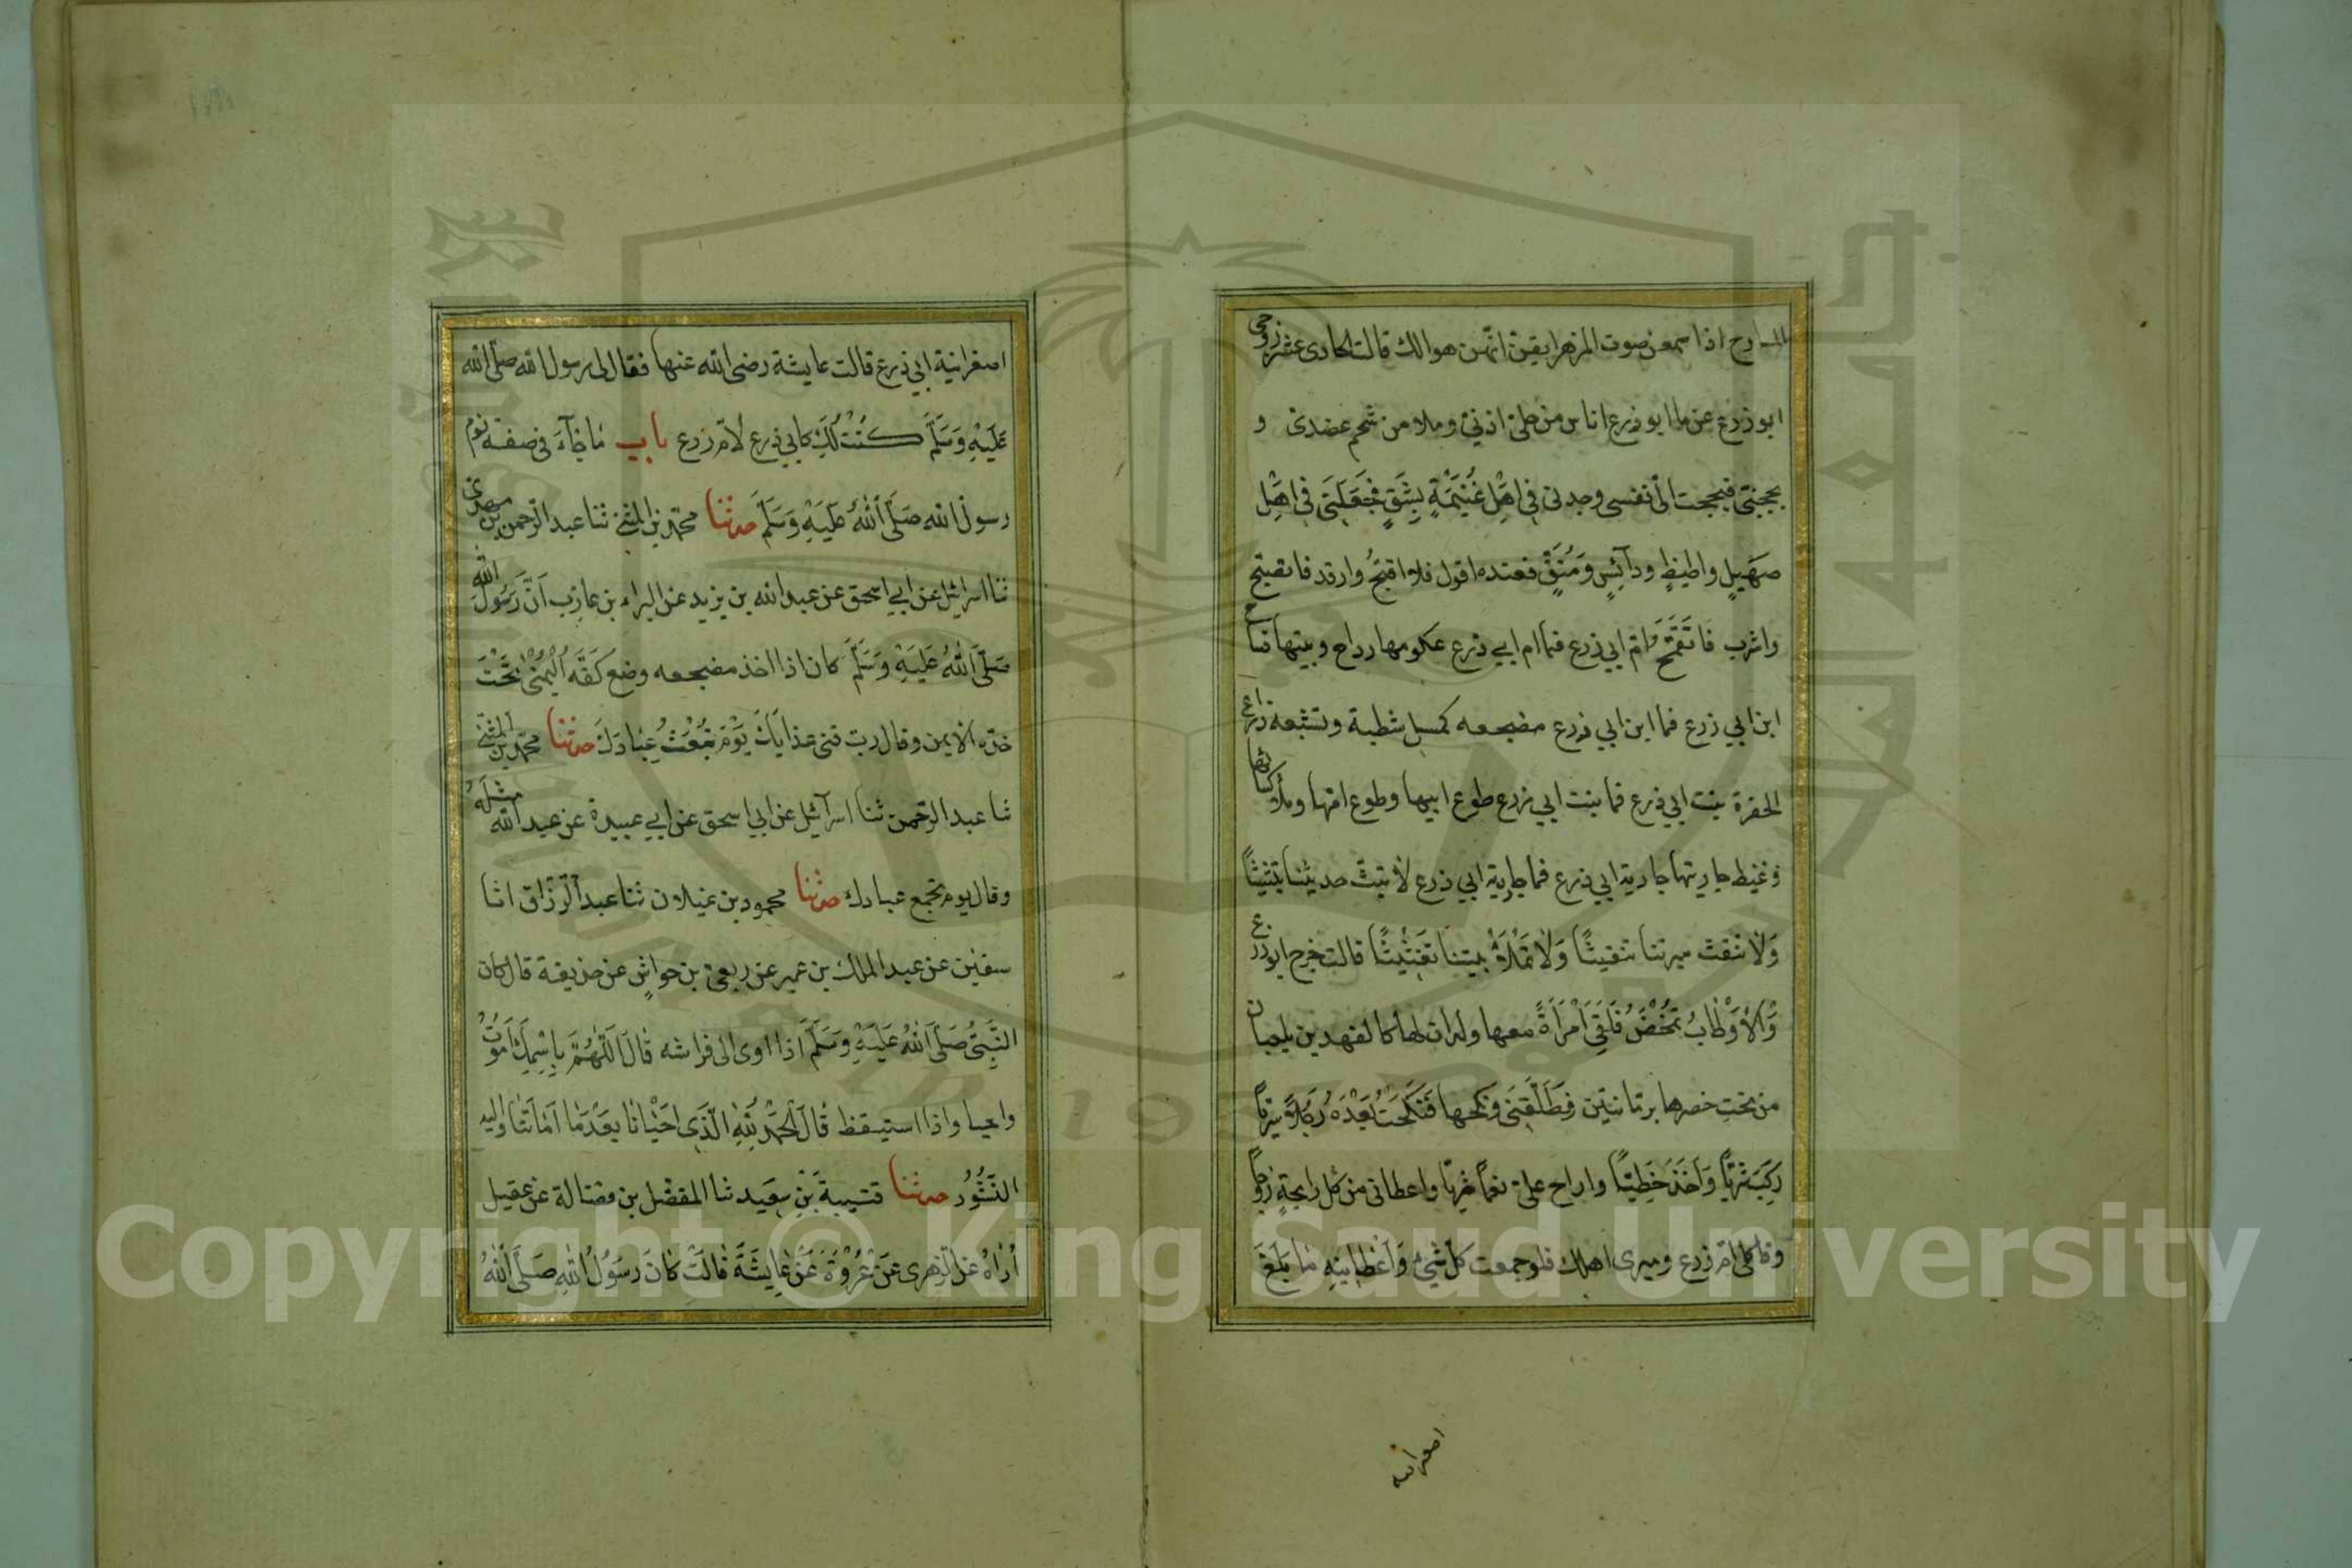 المسارح اذا سمعن صوت المزهر ايقن انهن هوالك قالت الحادى عشر زوجى
ابو زرع عن ما ابو زرع اناس من حلى اذنى وملا من شحم عضدى و
بججنى فبججت الى نفسى وجدنى فى اَهْلِ غُنَيْمَةٍ بِشَقٍ فَجَعَلَنَى فى اهْلِ
صَهَيلٍ واطيطٍ ودآئِسٍ وَمُنَقٍّ فعنده اقول فلا اقبَحُ وارقد فاتصبح
واشرب فاَتَقَمَّحَ وام ابى زرع فما ام ابى زرع عكومها رداح وبيتها فساح
ابن ابي زرع فما ابن ابي زرع مضجعه كمسل شطبة وتشبعة ذراع
الجفرة بنت ابى زرع فما بنت ابى زرع طوع ابيها وطوع امها وملأ كسائها
وغيظ جارتها جارية ابى زرع فما جارية ابي زرع لا تبث حديثنا تبثيثًا
وَلا تنقث ميرتنا تنقيثًا وَلا تَمْلَاُ بيتنا تَغْثيْثًا قالت خرج ابو زرع
وَالأَوْطابُ تُمْخَضُ فَلَقِىَ اَمْرَأةً معها ولدان لها كالفهدين يلعبان
من تحت خصرها برمانتين فَطَلَّقَنِى وَنكحها فَنَكَحْتُ بَعْدَهُ رَجُلاً سَرِيًّا
رَكِبَ شَرِيًّا وَاَخَذَ خَطِّيًّا واراح علىّ نعمًا ثريًا واعطانى من كل رايحةٍ زوجًا
وقال كلى ام زرع وميرى اهلك فلو جمعت كل شئ اَعْطانِيهِ ما بَلَغَ
اصغر انية
اصغر انية ابي زرع قالت عايشة رضى الله عنها فقال لى رسول الله صلى الله
عَلَيْهِ وَسَلَّمَ كُنْتُ لَكِ كابي زرع لام زرع باب ما جآءَ فى صفة نوم
رسول الله صَلَّى اللهُ عَلَيْهِ وَسَلَّمَ حدثنا محمد بن المثنى ثنا عبد الرحمن بن مهدى
ثنا اسرائيل عن ابي اسحق عن عبد الله بن يزيد عن البراء بن عازب اَنّ رَسُولَ الله
صَلَّى اللهُ عَلَيْهِ وَسَلَّمَ كان اذا اخذ مضجعه وضع كَفَّهُ اليُمْنى تَحْتَ
خده الايمن وقال رب قنى عذابَكَ يَوْمَ تَبْعَثُ عِبَادَكَ حدثنا محمد بن المثنى
ثنا عبد الرحمن ثنا اسرآئيل عن ابي اسحق عن ابي عبيدة عن عبد الله مثلَهُ
وقال يوم تجمع عبادك حدثنا محمود بن غيلان ثنا عبد الرزاق انا
سفين عن عبد الملك بن عمير عن ربعى بن حواش عن حذيفة قال كان
النَّبِىُّ صَلَّى اللهُ عَلَيْهِ وَسَلَّمَ اذا اوى الى فراشه قالَ اَللَّهُمَّ بِاسْمِكَ اَمُوتُ
واحيا واذا استيقظ قالَ اَلْحَمْدُ لِلّهِ الَّذِى احْيانا بَعْدَما اَماتَنا واليه
النُّشُورُ حدثنا قتيبة بن سعيد ثنا المفضل بن فضالة عن عقيل
أُراهُ عن الزهرى عَنْ عُرْوَةَ عَنْ عايِشَةَ قالَتْ كانَ رَسُولُ اللهِ صَلَّى اللهُ
Copyright © King Saud University
1957